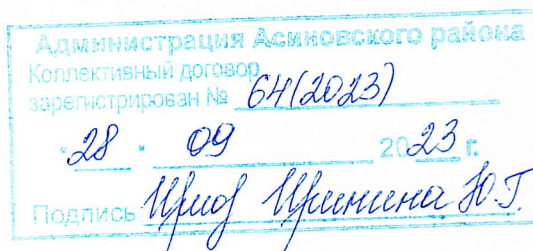 Администрация Асиновского района
Коллективный договор
зарегистрирован № 64(2023)
"28" 09 2023 г.
Подпись Ю.Г.